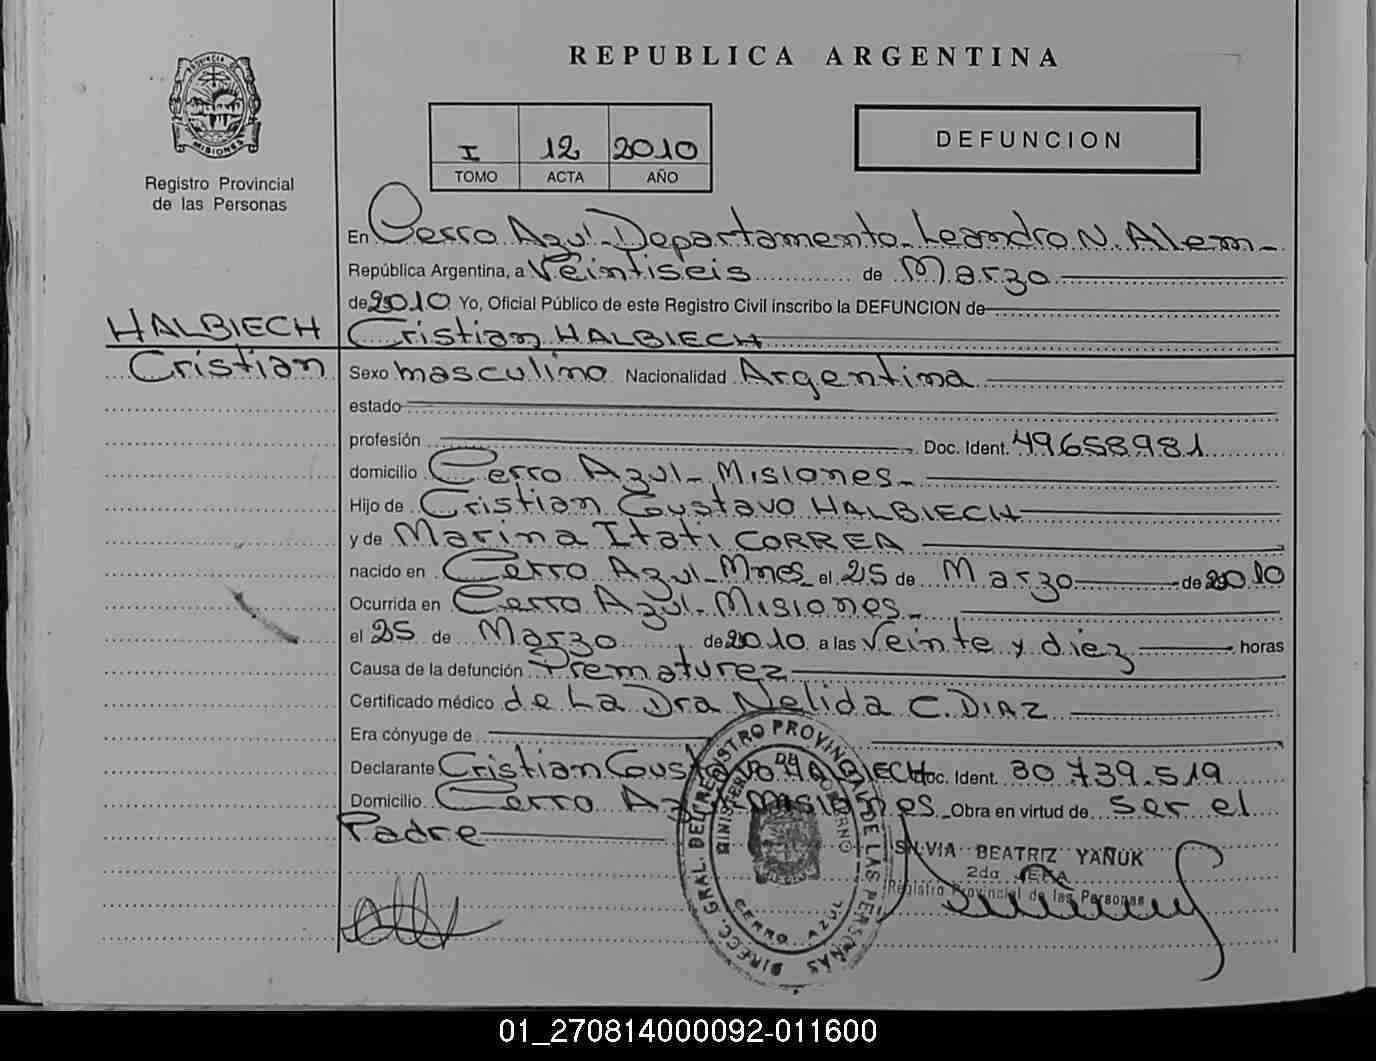 REPUBLICA ARGENTINA
PROVINCIA DE
MISIONES
Registro Provincial
de las Personas
I 12 2010
TOMO ACTA AÑO
DEFUNCION
En Cerro Azul - Departamento - Leandro N. Alem -
República Argentina, a Veintiseis de Marzo
de 2010 Yo, Oficial Público de este Registro Civil inscribo la DEFUNCION de
HALBIECH
Cristian
Cristian HALBIECH
Sexo masculino Nacionalidad Argentina
estado
profesión Doc. Ident. 49658981
domicilio Cerro Azul - Misiones -
Hijo de Cristian Gustavo HALBIECH
y de Marina Itati CORREA
nacido en Cerro Azul - Mnes el 25 de Marzo de 2010
Ocurrida en Cerro Azul - Misiones -
el 25 de Marzo de 2010 a las Veinte y diez horas
Causa de la defunción Prematurez
Certificado médico de La Dra Nelida C. DIAZ
Era cónyuge de
Declarante Cristian Gustavo HALBIECH Doc. Ident. 30.739.519
Domicilio Cerro Azul Misiones - Obra en virtud de ser el
Padre
DIRECC. GRAL. DEL REGISTRO PROVINCIAL DE LAS PERSONAS
MINISTERIO DE GOBIERNO
CERRO AZUL
SILVIA BEATRIZ YAÑUK
2da JEFA
Registro Provincial de las Personas
01_270814000092-011600